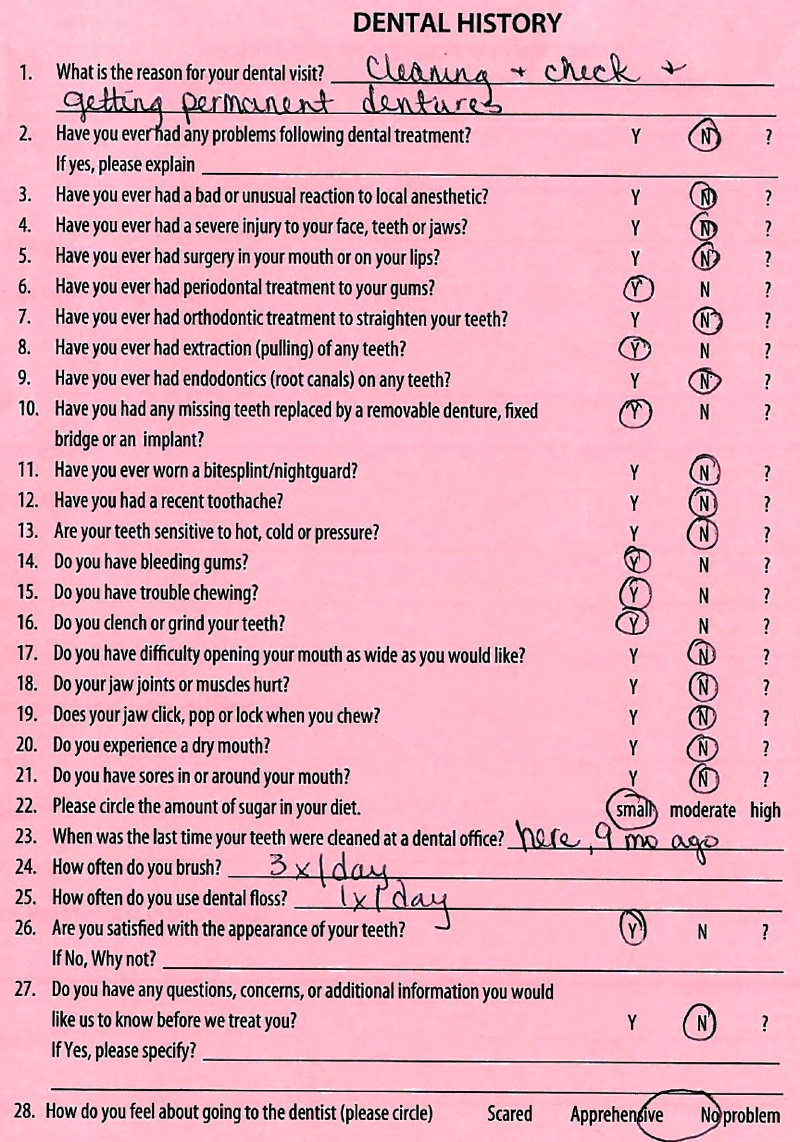 DENTAL HISTORY
1. What is the reason for your dental visit? Cleaning + check +
getting permanent dentures
2. Have you ever had any problems following dental treatment? Y N ?
If yes, please explain
3. Have you ever had a bad or unusual reaction to local anesthetic? Y N ?
4. Have you ever had a severe injury to your face, teeth or jaws? Y N ?
5. Have you ever had surgery in your mouth or on your lips? Y N ?
6. Have you ever had periodontal treatment to your gums? Y N ?
7. Have you ever had orthodontic treatment to straighten your teeth? Y N ?
8. Have you ever had extraction (pulling) of any teeth? Y N ?
9. Have you ever had endodontics (root canals) on any teeth? Y N ?
10. Have you had any missing teeth replaced by a removable denture, fixed Y N ?
bridge or an implant?
11. Have you ever worn a bitesplint/nightguard? Y N ?
12. Have you had a recent toothache? Y N ?
13. Are your teeth sensitive to hot, cold or pressure? Y N ?
14. Do you have bleeding gums? Y N ?
15. Do you have trouble chewing? Y N ?
16. Do you clench or grind your teeth? Y N ?
17. Do you have difficulty opening your mouth as wide as you would like? Y N ?
18. Do your jaw joints or muscles hurt? Y N ?
19. Does your jaw click, pop or lock when you chew? Y N ?
20. Do you experience a dry mouth? Y N ?
21. Do you have sores in or around your mouth? Y N ?
22. Please circle the amount of sugar in your diet. small moderate high
23. When was the last time your teeth were cleaned at a dental office? here, 9 mo ago
24. How often do you brush? 3x/day
25. How often do you use dental floss? 1x/day
26. Are you satisfied with the appearance of your teeth? Y N ?
If No, Why not?
27. Do you have any questions, concerns, or additional information you would
like us to know before we treat you? Y N ?
If Yes, please specify?
28. How do you feel about going to the dentist (please circle) Scared Apprehensive No problem